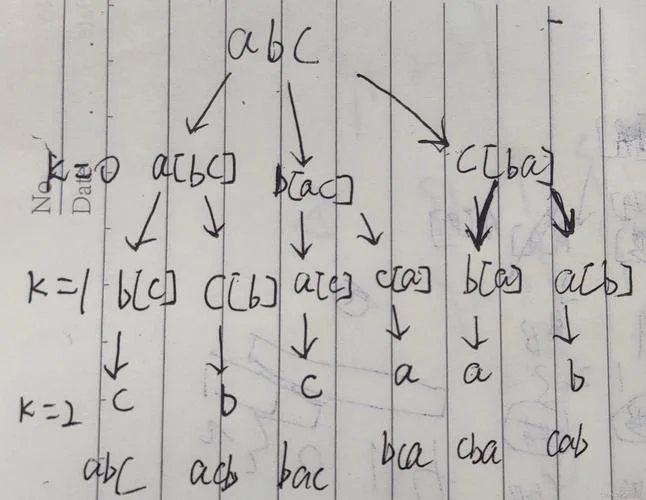 abc
No
Date
k=0 a[bc] b[ac] c[ba]
k=1 b[c] c[b] a[c] c[a] b[a] a[b]
k=2 c b c a a b
abc acb bac bca cba cab